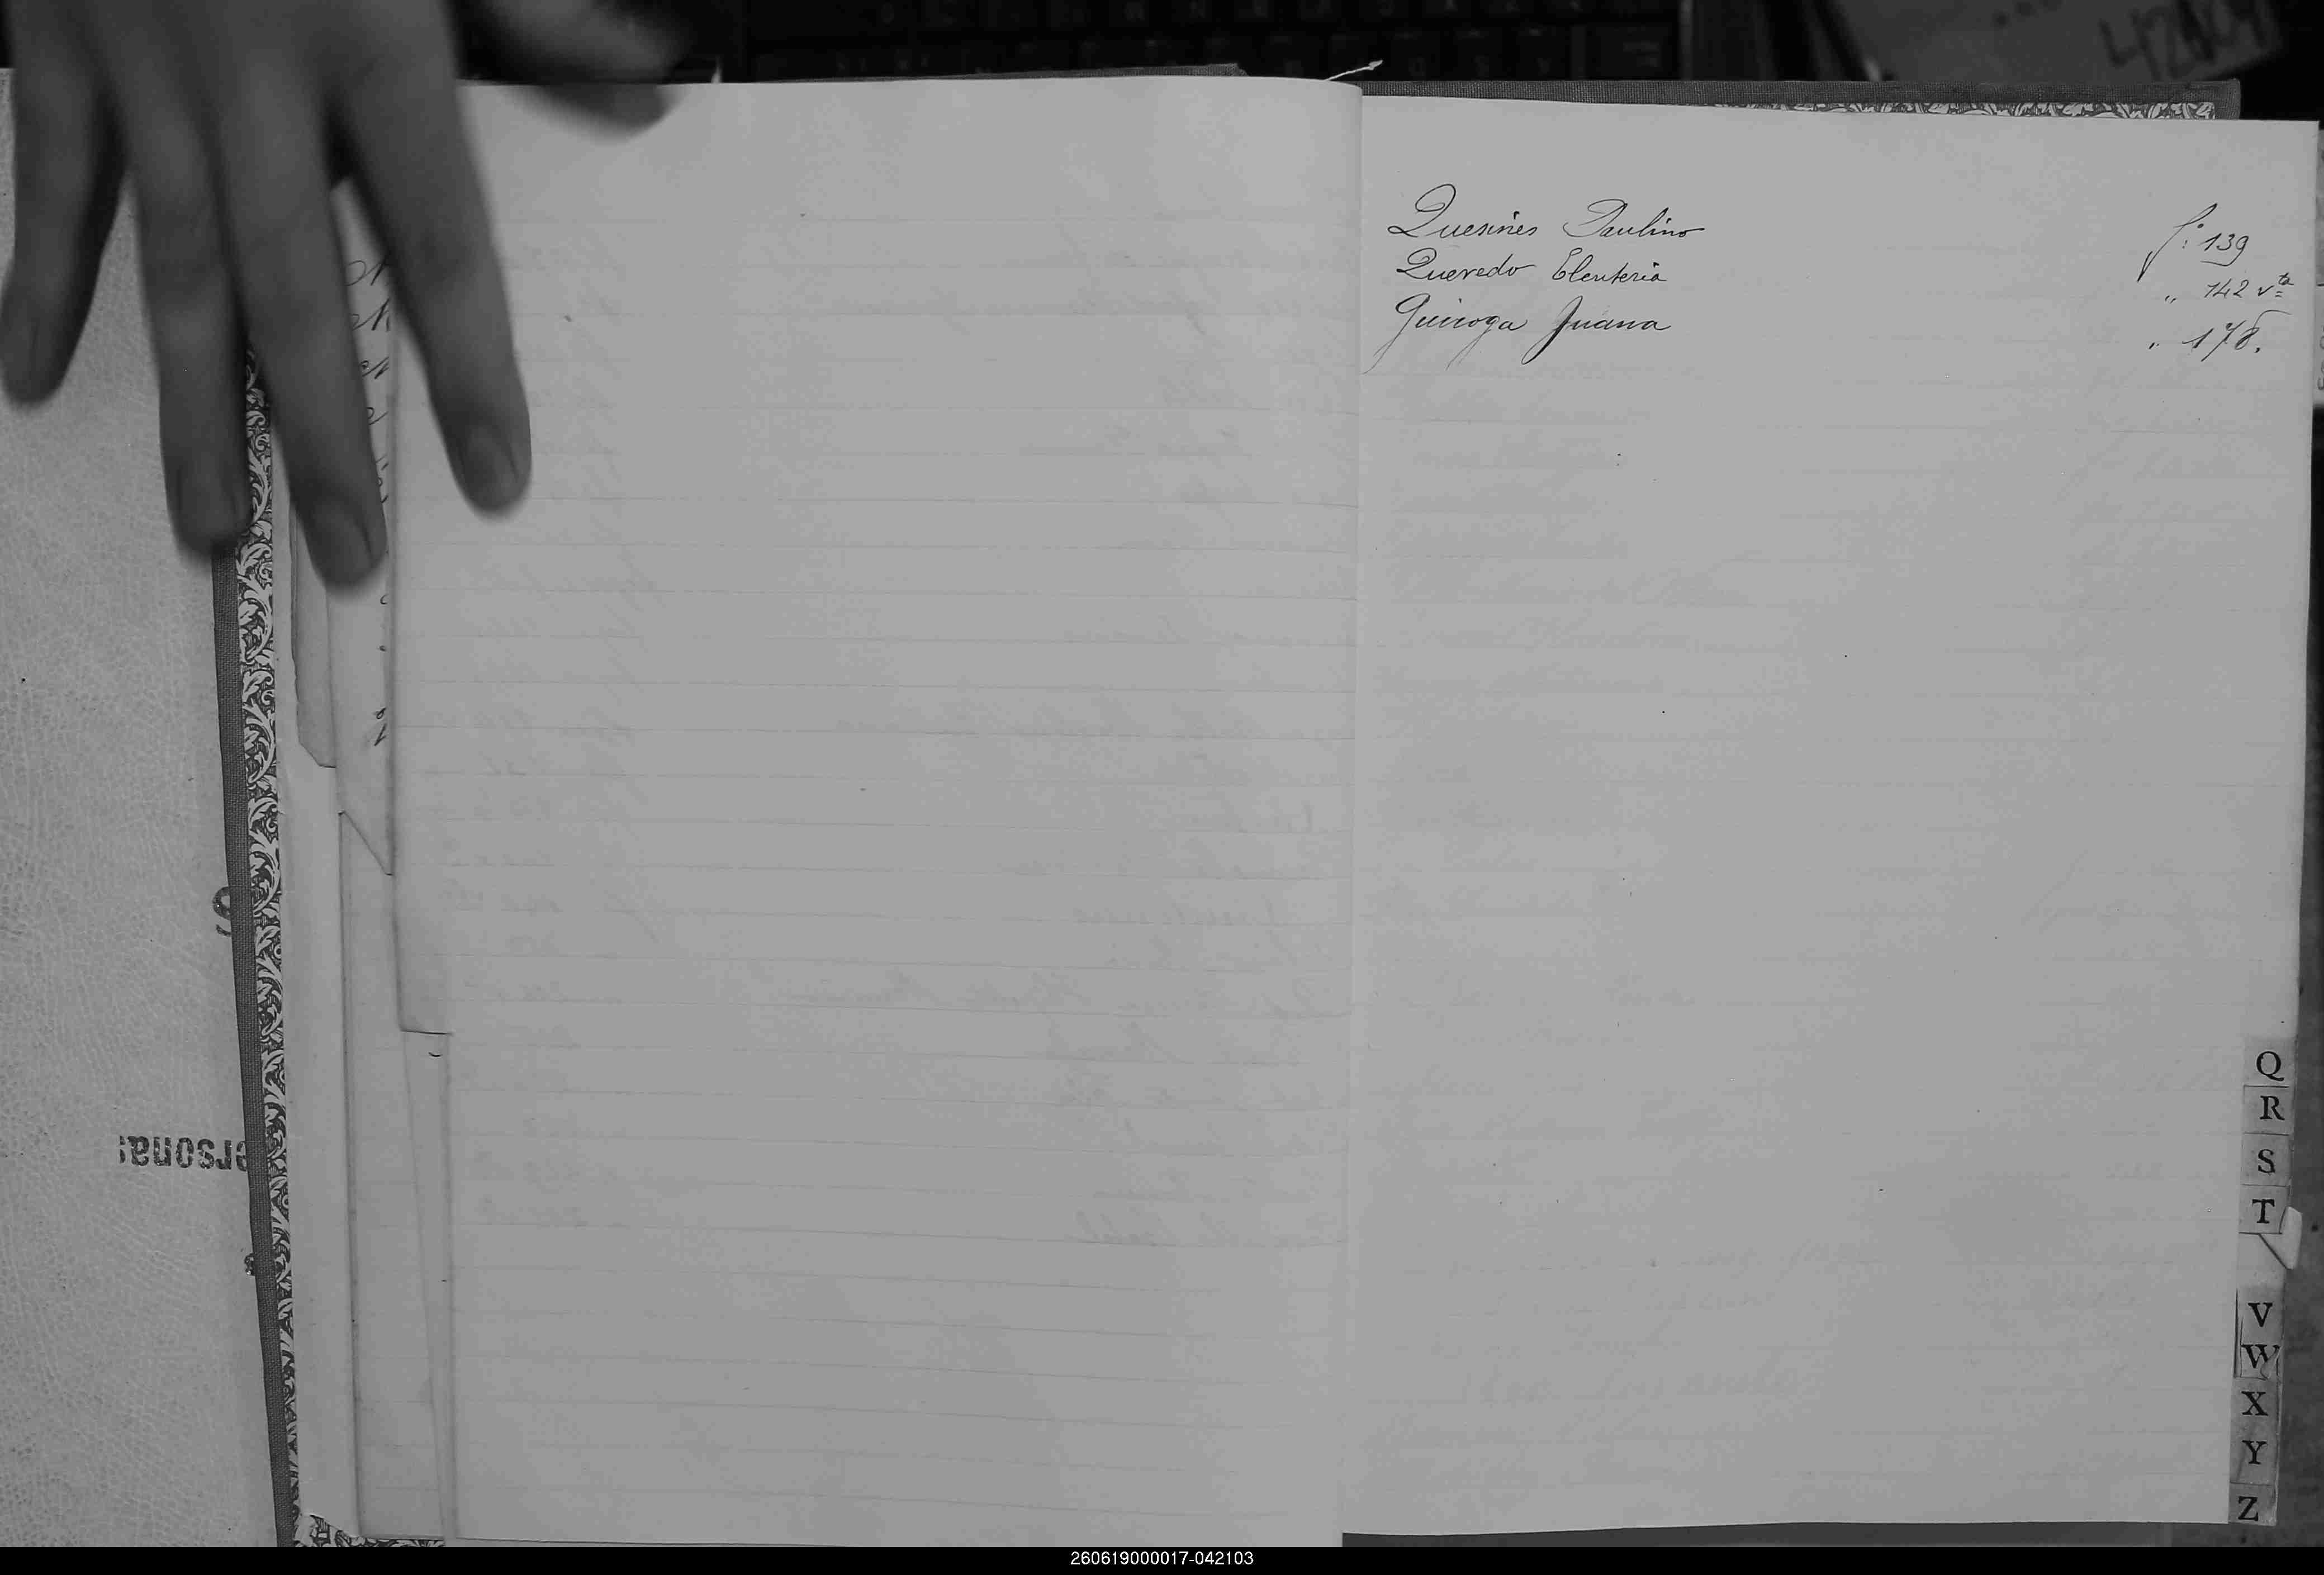 Quesines Paulino fº: 139
Quevedo Eleuteria „ 142 vta
Quiroga Juana „ 178.
Q
R
S
T
V
W
X
Y
Z
260619000017-042103